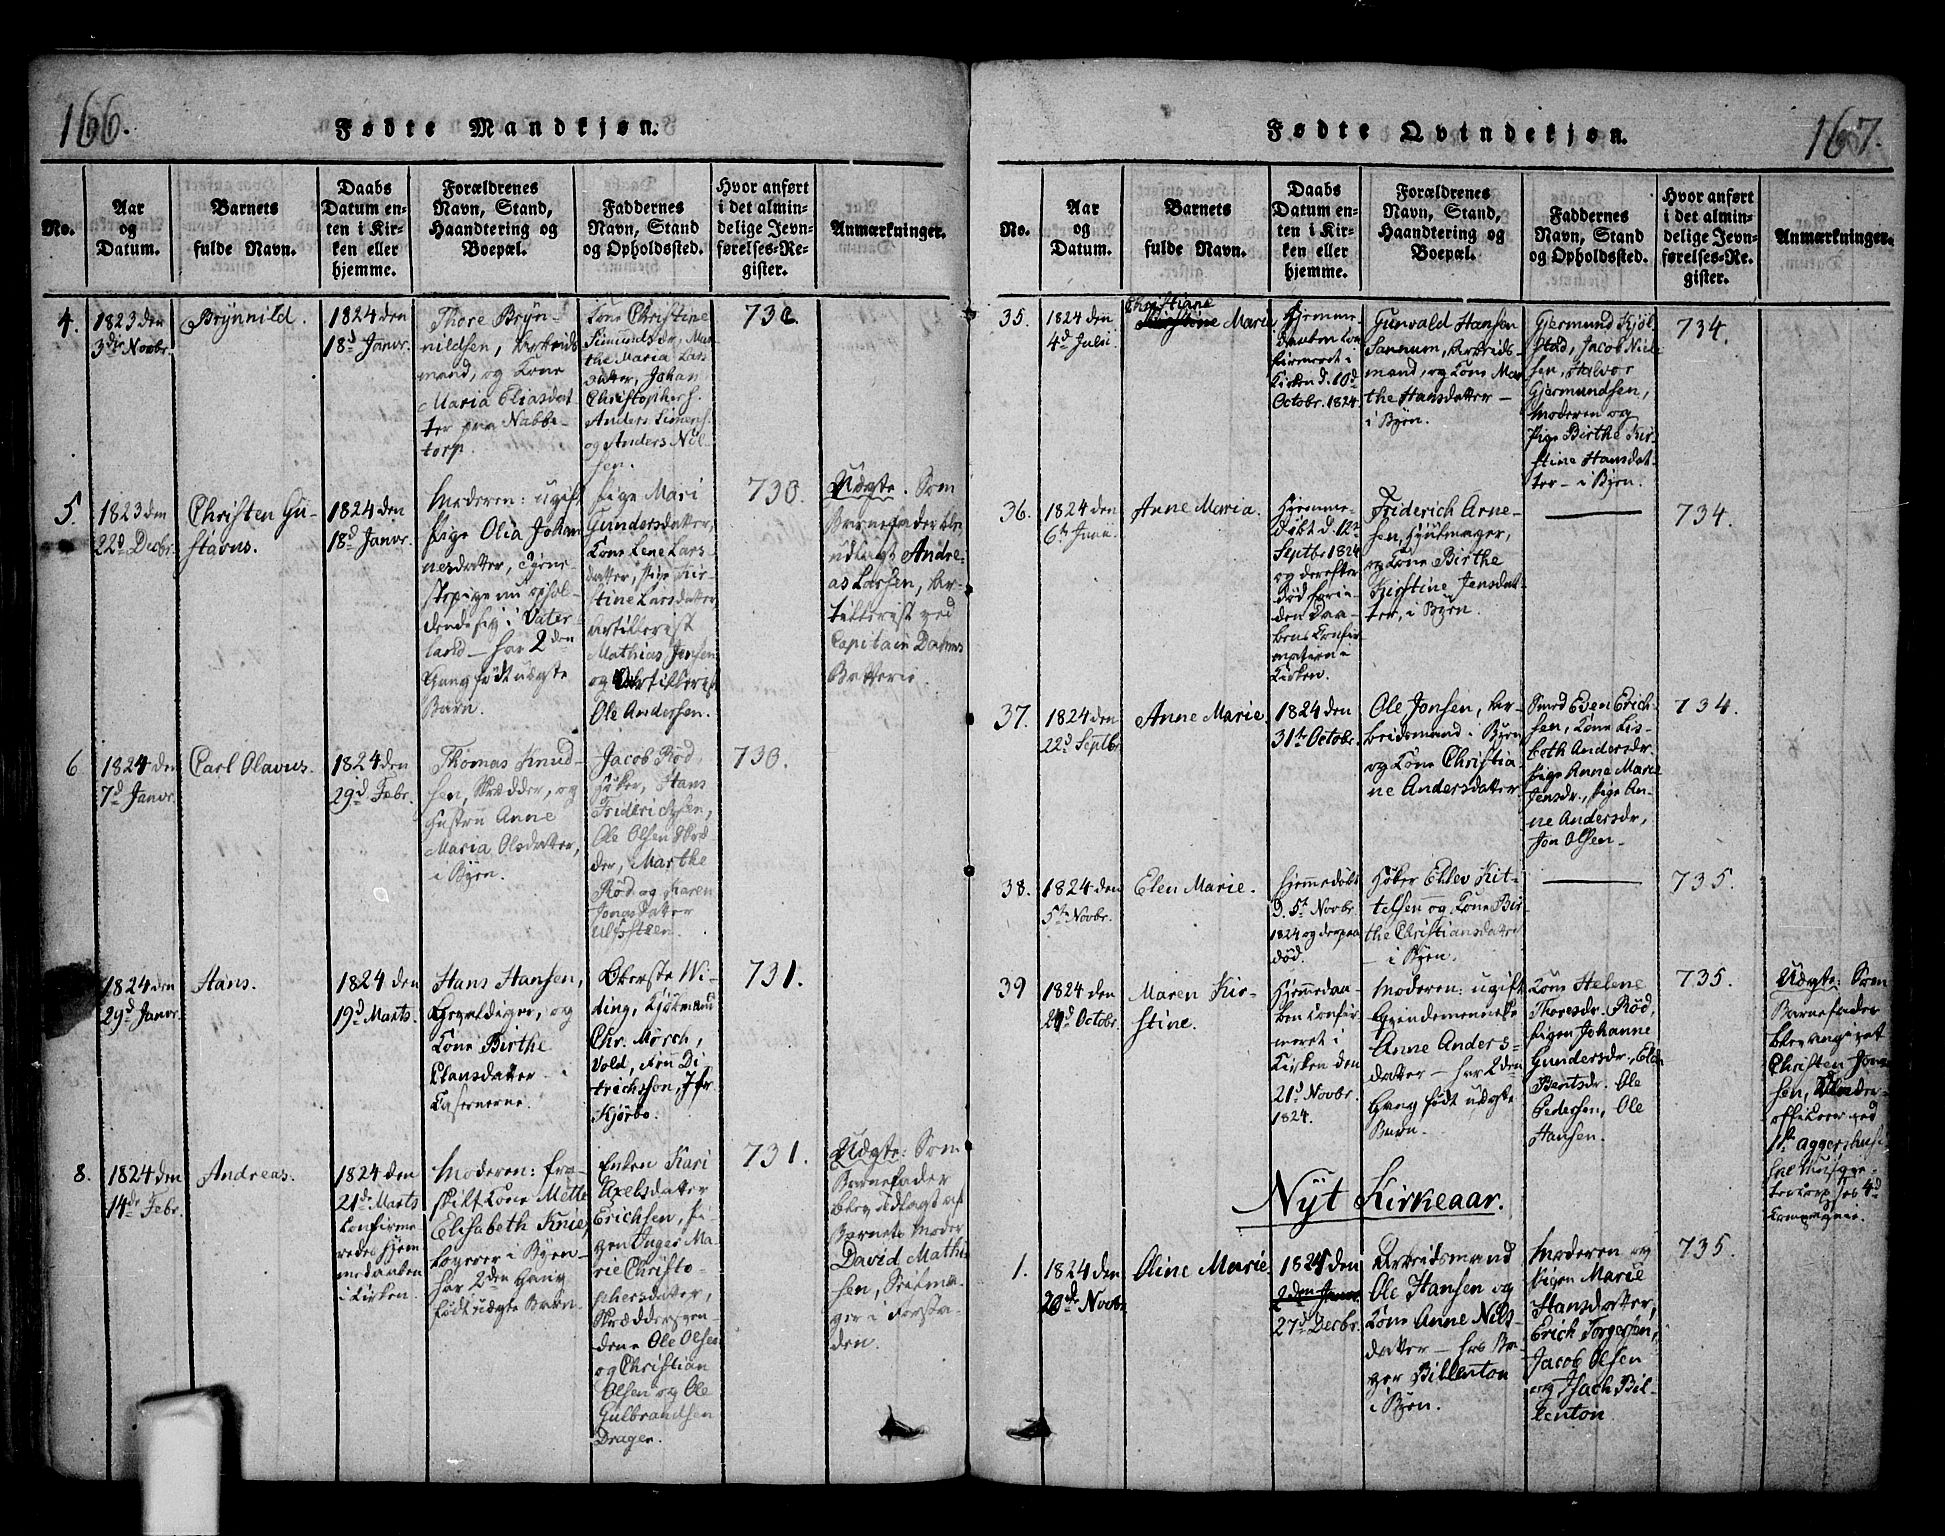 166.
Fødte Mandkjøn.
No.
Aar
og
Datum.
Barnets
fulde Navn.
Daabs
Datum en-
ten i Kir-
ken eller
hjemme.
Forældrenes
Navn, Stand,
Haandtering og
Boepæl.
Faddernes
Navn, Stand
og Opholdssted.
Hvor anført
i det almin-
delige Jevn-
førelses-Re-
gister.
Anmærkninger.
4.
1823 den
3die Novbr.
Brynnild.
1824 den
18d Janvr.
Thore Bryn-
nildsen, Arbeids
mand, og Kone
Maria Eliasdat
ter paa Nabbe-
torp.
Kone Christine
Simundsdr, Mar
the Maria Lars
datter, Johan
Christophers.
Anders Simens.
og Anders Nil
sen.
730.
5.
1823 den
22d Decbr.
Christen Gu-
stavus.
1824 den
18d Janvr.
Moderen: ugift
Pige Olia Johan
nesdatter, Tjene-
stepige nu ophol-
dende sig i Vater
land – har 2den
Gang født uægte
Barn.
Pige Mari
Gundersdatter,
Kone Lene Lars
datter, Pige Kir-
stine Larsdatter
Artillerist
Mathias Jensen
og Artillerist
Ole Anderssen.
730.
Uægte. Som
Barnefader blev
udlagt Andre-
as Larsen, Ar-
tillerist ved
Capitain Dahms
Batterie.
6
1824 den
7d Janvr.
Carl Olavus.
1824 den
29d Febr.
Thomas Knud
sen, Skrædder, og
Hustru Anne
Maria Olsdatter,
i Byen.
Jacob Rød,
Høker, Hans
Friderichsen,
Ole Olsen Skræ
der, Marthe
Rød og Karen
Jonasdatter
730.
1824 den
29d Janvr.
Hans.
1824 den
19d Marts.
Hans Hansen,
og
Kone Birthe
Clausdatter – i
Casernerne.
Oberste Wi-
ding, Kjøbmand
Chr. Mørsch,
Vold,
Kjørbo.
731.
8.
1824 den
14de Febr.
Andreas.
1824 den
21de Marts
Confirme
redes Hjem
medaaben
i Kirken.
Moderen: fra-
skilt Kone Mette
Elisabeth Knie,
Logerer i Byen –
har 2den Gang
født uægte Barn.
Enken Kari
Axelsdatter
Erichsen, Pi-
gen Inger Ma-
rie Christo-
phersdatter,
Skræddersven-
dene Ole Olsen
og Christian
Olsen og Ole
Gulbrandsen
Drager.
731.
Uægte: Som
Barnefader
blev udlagt af
Barnets Moder
David Mathi
sen,
ger i Forsta-
den.
167.
Fødte Qvindekjøn.
No.
Aar
og
Datum.
Barnets
fulde Navn.
Daabs
Datum en-
ten i Kir-
ken eller
hjemme.
Forældrenes
Navn, Stand,
Haandtering og
Boepæl.
Faddernes
Navn, Stand
og Opholdssted.
Hvor anført
i det almin-
delige Jevn-
førelses-Re-
gister.
Anmærkninger.
35.
1824 den
4d Julii.
Christiane
Marie
Hjemme-
daaben Con
firmeret i
Kirken d. 10d
Octobr. 1824.
Gunvald Hansen
Sannum, Arbeids-
mand, og Kone Mar
the Hansdatter –
i Byen.
Gjermund Kjøl
stad, Jacob Niel
sen, Halvor
Gjermundsen,
Moderen og
Pige Birthe Kir-
stine Hansdat-
ter – i Byen.
734.
36.
1824 den
Anne Maria.
Hjemme-
døbt d. 12te
Septbr 1824
og derefter
død førin-
den Daa-
bens Confir
mation i
Kirken.
Friderich Arne-
sen, Hjulmager,
og Kone Birthe
Kirstine Jensdat-
ter, i Byen.
734.
37.
1824 den
22d Septbr.
Anne Marie.
1824 den
31te Octobr.
Ole Jonsen, Ar-
beidsmand i Byen,
og Kone Christia
ne Andersdatter
Smed Even Erich-
sen, Kone Lis-
beth Andersdr.
Pige Anne Marie
Jensdr., Pige An-
ne Andersdr,
Jon Olsen –
734.
38.
1824 den
5te Novbr.
Elen Marie.
Hjemmedøbt
d. 5te Novbr
1824 og derpaa
død.
Høker Ehlev Kit-
telsen og Kone Bir-
the Christiansdatter
– i Byen.
735.
39
1824 den
Octobr.
Maren Kir-
stine.
Hjemmedaa-
ben Confir-
meret i
Kirken den
21d Novbr.
1824.
Moderen: ugift
Qvindemenneske
Anne Anders-
datter – har 2den
Gang født uægte
Barn.
Kone Helene
Thoresdr. Rød,
Pigen Johanne
Gundersdr.,
Bentsdr. Ole
Pedersen, Ole
Hansen.
735.
Uægte: Som
Barnefader
blev angivet
Christen Jon-
sen, Under-
officeer ved
1ste Aggershusi
ske Musque-
teercorps 4d
Compagnie.
Nyt Kirkeaar.
1.
1824 den
20de Novbr.
Oline Marie.
1824 den
27d Decbr.
Arbeidsmand
Ole Hansen og
Kone Anne Nils-
datter – hos Ba-
ger Billenton
i Byen.
Moderen og
Pigen Marie
Hansdatter,
Erich Torgersen,
Jacob Olsen
og Isach Bil-
lenton.
735.